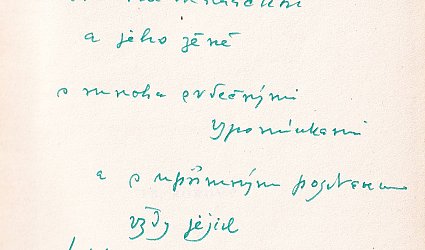 a jeho ženě
s mnoha srdečnými
vzpomínkami
a s upřímným pozdravem
vždy jejich